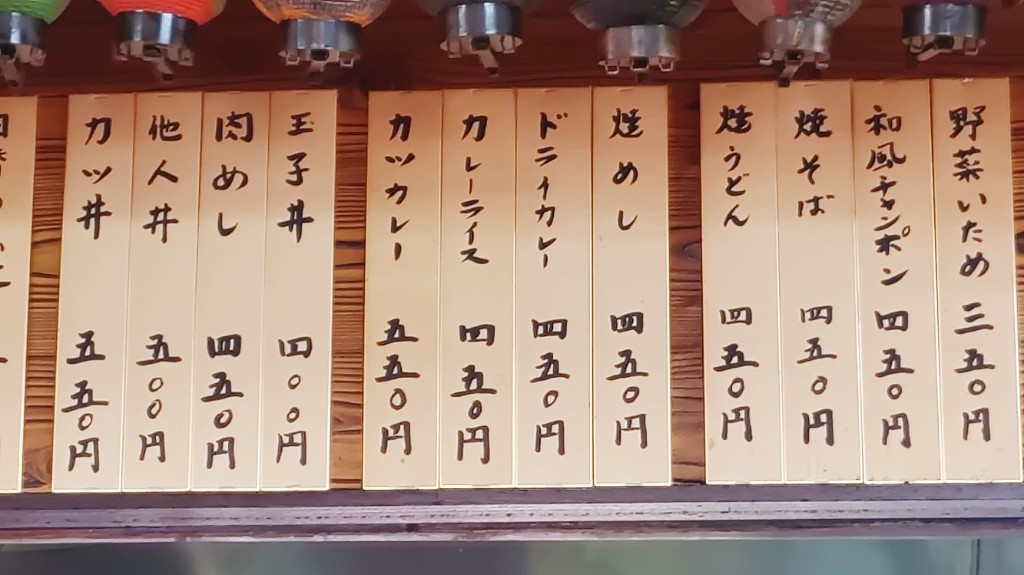 野菜いため 三五〇円
和風チャンポン 四五〇円
焼そば 四五〇円
焼うどん 四五〇円
焼めし 四五〇円
ドライカレー 四五〇円
カレーライス 四五〇円
カツカレー 五五〇円
玉子丼 四〇〇円
肉めし 四五〇円
他人丼 五〇〇円
カツ丼 五五〇円